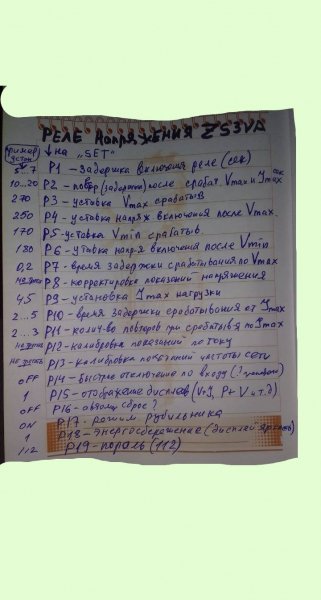 РЕЛЕ НАПРЯЖЕНИЯ ZS3VA
↓ на „SET"
5 7 P1 – Задержка включения реле (сек)
10...20 P2 – повтр (задержка) после сработ Vmax и Jmax сек
270 P3 – уставка Vmax сработыв
250 P4 – уставка напряж включения после Vmax
170 P5 – уставка Vmin сработыв.
180 P6 – уставка напря включения после Vmin
0,2 P7 – время задержки срабатывания по Vmax
P8 – корректировка показаний напряжения
45 P9 – установка Jmax нагрузки
2...5 P10 – время задержки срабатывания от Jmax
2...3 P11 – колич-во повторов при сработыв по Jmax
P12 – калибровка показаний по току
P13 – калибровка показаний частоты сети
OFF P14 – быстрое отключение по входу
1 P15 – отображение дисплеев (V+J, P+V и т.д)
OFF P16 – обязат сброс?
ON P17 – режим рубильника
1 P18 – энергосбережение (дисплей яркость)
112 P19 – пороль (112)